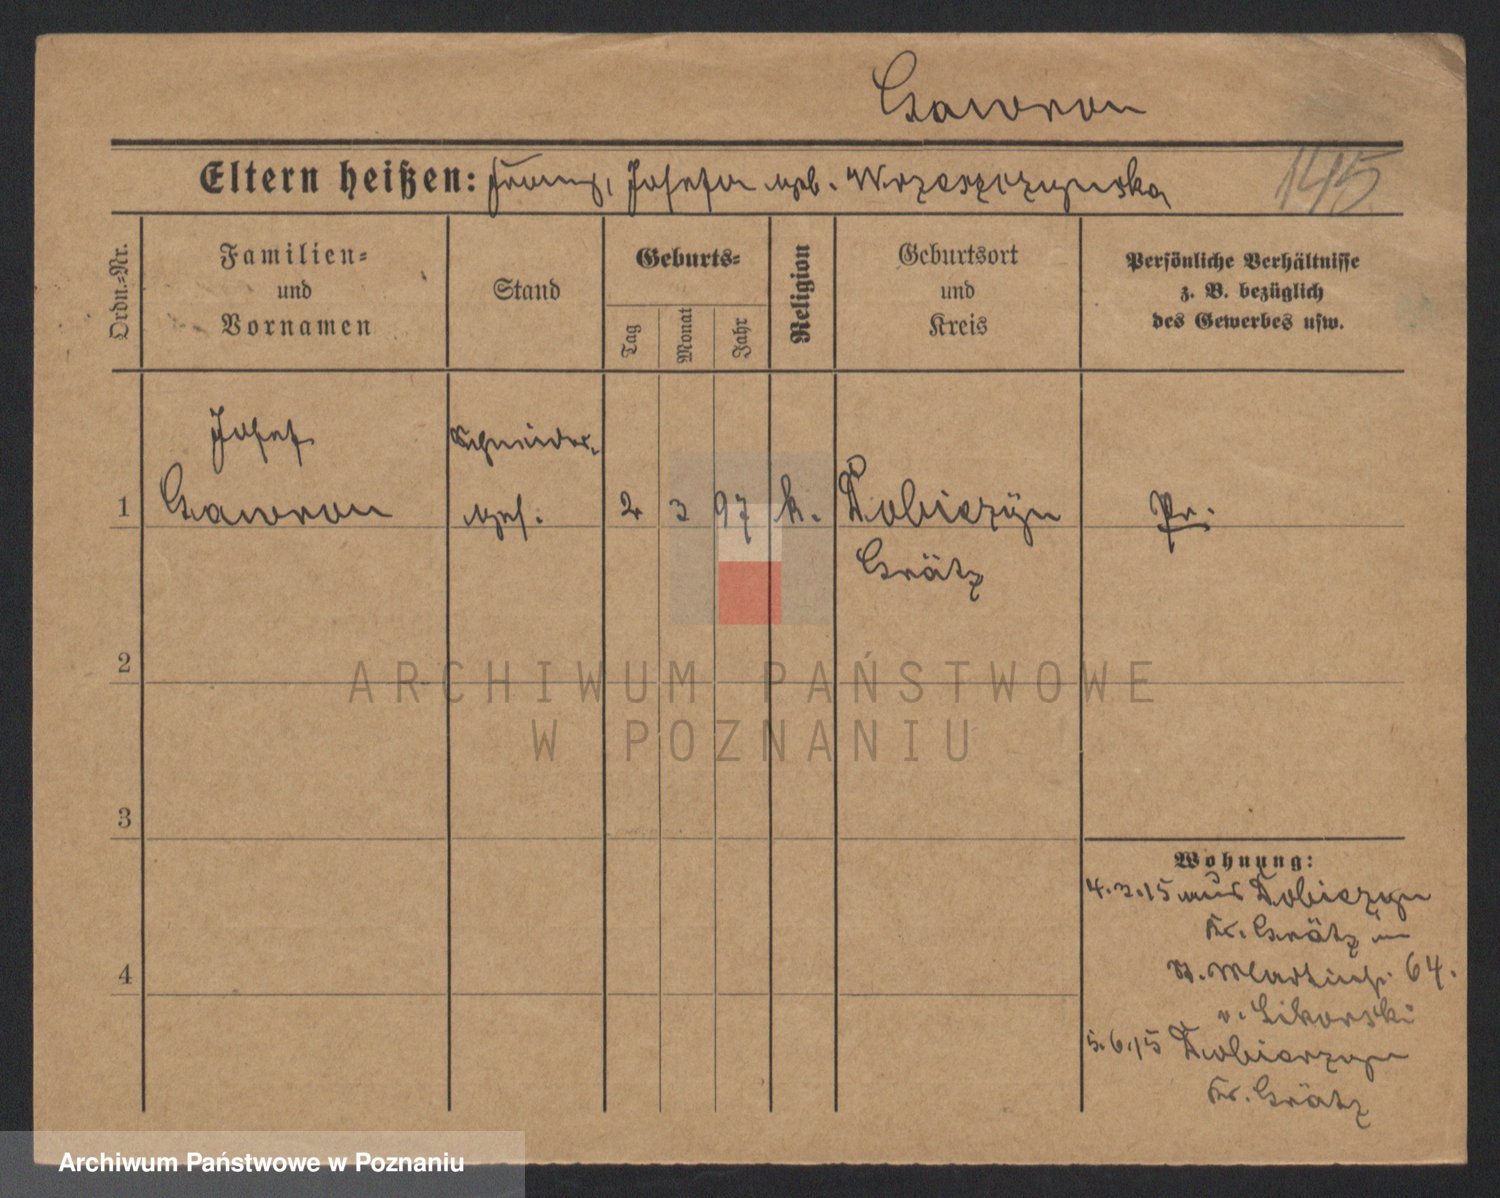 Gawron
Eltern heißen: Franz, Josefa geb. Wrzeszczynska
145
Ordn.=Nr.
Familien=
und
Vornamen
Stand
Geburts=
Tag
Monat
Jahr
Religion
Geburtsort
und
Kreis
Persönliche Verhältnisse
z. B. bezüglich
des Gewerbes usw.
Josef
Schneider-
1 Gawron
ges.
2 3 97 k.
Dobiezyn
Pr.
Grätz
2
ARCHIWUM PAŃSTWOWE
W POZNANIU
3
4
Wohnung:
4.3.15 aus Dobiezyn
Kr. Grätz in
St. Martinstr. 64.
v. Sikorski
5.6.15 Dobiezyn
Kr. Grätz
Archiwum Państwowe w Poznaniu